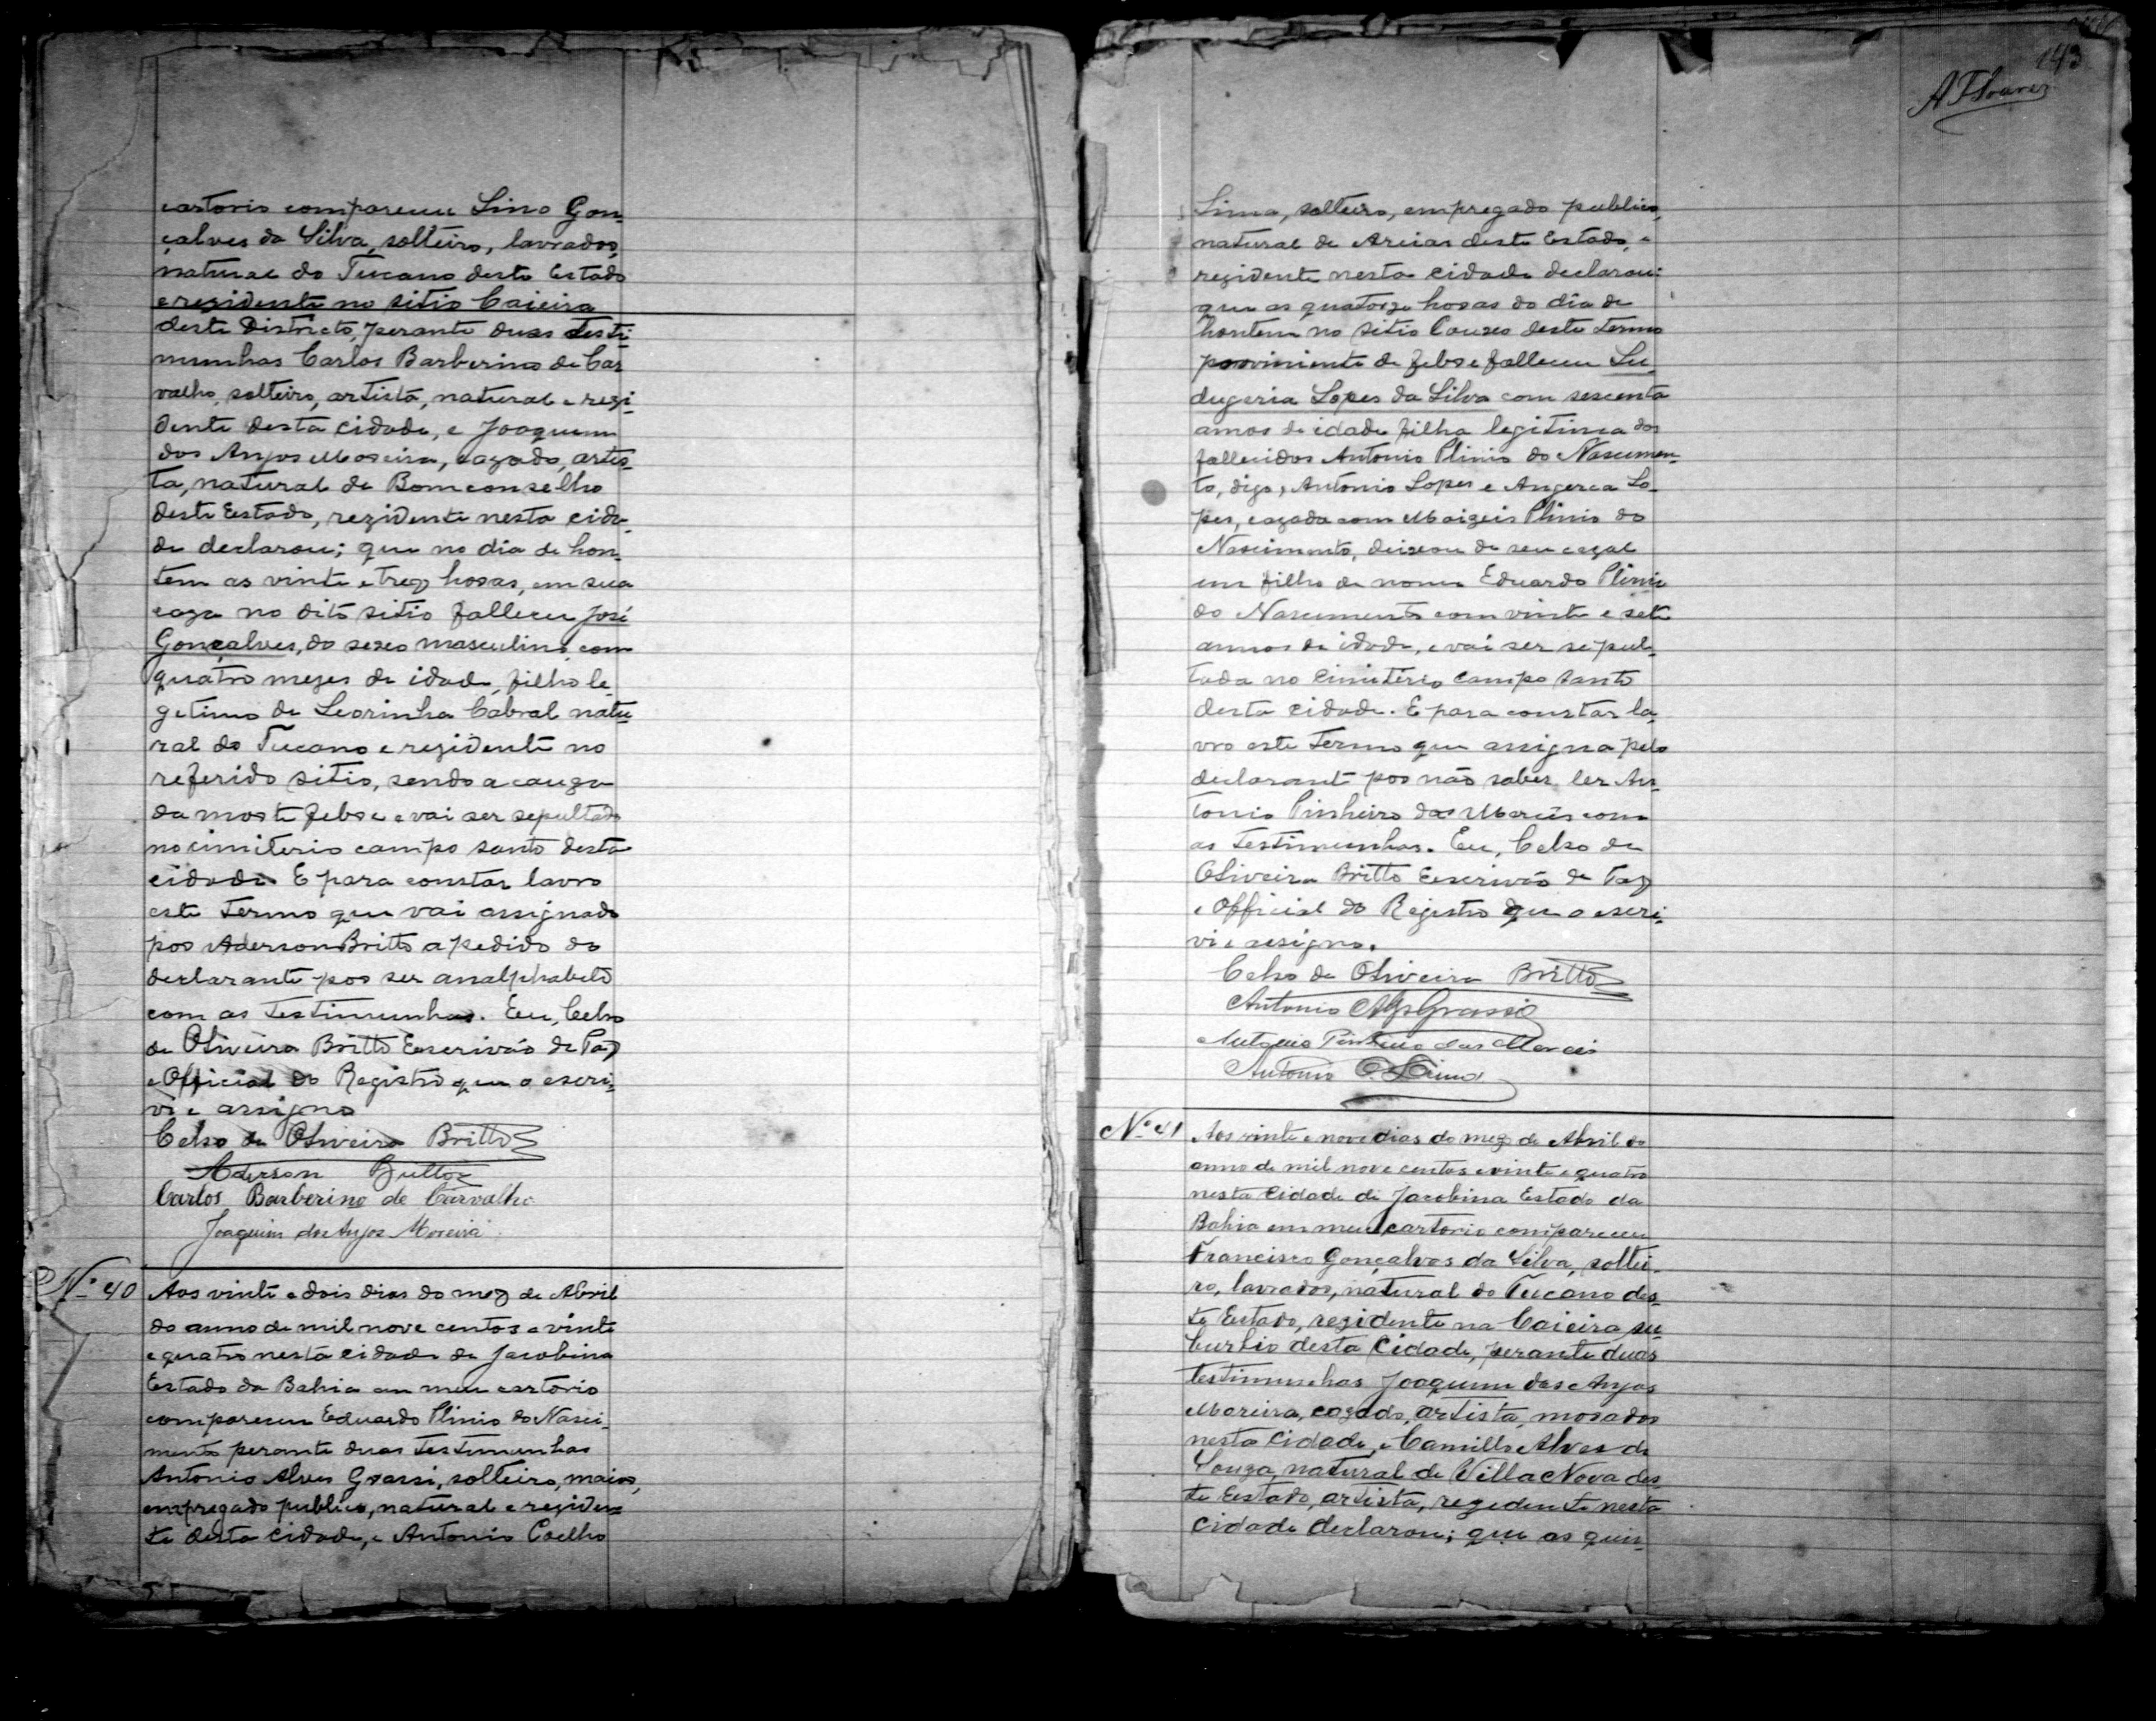 cartorio compareceu Lino Gon-
çalves da Silva, solteiro, lavrador,
natural do Tucano deste Estado
e rezidente no sitio Caieira
deste Districto, perante duas testi-
munhas Carlos Barberino de Car
valho, solteiro, artista, natural e rezi-
dente desta cidade, e Joaquim
dos Anjos Moreira, cazado, artis-
ta, natural de Bomconselho
deste Estado, rezidente nesta cida-
de declarou; que no dia de hon-
tem as vinte e trez horas, em sua
caza no dito sitio falleceu José
Gonçalves, do sexo masculino, com
quatro mezes de idade, filho le-
getimo de Leorinha Cabral natu-
ral do Tucano e rezidente no
referido sitio, sendo a cauza
da morte febre e vai ser sepultado
no cimiterio campo santo desta
cidade. E para constar lavro
este termo que vai assignado
por Aderson Britto a pedido do
declarante por ser analphabeto
com as testimunhas. Eu, Celso
de Oliveira Britto Escrivão de Paz
e Official do Registro que o escri-
vi e assigno
Celso de Oliveira Britto
Aderson Britto
Carlos Barberino de Carvalho
Joaquim dos Anjos Moreira
Nº 40 Aos vinte e dois dias do mez de Abril
do anno de mil nove centos e vinte
e quatro nesta cidade de Jacobina
Estado da Bahia em meu cartorio
compareceu Eduardo Plinio do Nasci-
mento perante duas testimunhas
Antonio Alves Grassi, solteiro, maior,
empregado publico, natural e reziden-
te desta cidade, e Antonio Coelho
143
A F Soares
Lima, solteiro, empregado publico,
natural de Areias deste Estado, e
rezidente nesta cidade declarou:
que as quatorze horas do dia de
hontem no sitio deste termo
proviniente de febre falleceu Lu-
dugeria Lopes da Silva com sescenta
annos de idade filha legitima dos
fallecidos Antonio Plinio do Nascimen-
to, digo, Antonio Lopes e Angerca Lo-
pes, cazada com Moizeis Plinio do
Nascimento, deixou de seu cazal
um filho de nome Eduardo Plinio
do Nascimento com vinte e sete
annos de idade, e vai ser sepul-
tada no Cimiterio Campo Santo
desta cidade. E para constar la-
vro este termo que assigna pelo
declarante por não saber ler An-
tonio Pinheiro das Mercês com
as testimunhas. Eu, Celso de
Oliveira Britto Escrivão de Paz
e Official do Registro que o escri-
vi e assigno.
Celso de Oliveira Britto
Antonio Alves Grassi
Pinheiro das Merceis
Antonio C. Lima
Nº 41 Aos vinte e nove dias do mez de Abril do
anno de mil nove centos e vinte e quatro
nesta Cidade de Jacobina Estado da
Bahia em meu cartorio compareceu
Francisco Gonçalves da Silva, soltei-
ro, lavrador, natural do Tucano des-
te Estado, rezidente na Caieira su-
burbio desta Cidade, perante duas
testimunhas Joaquim dos Anjos
Moreira, cazado, artista, morador
nesta Cidade, e Camillo Alves de
Souza, natural de Villa Nova des-
te Estado, artista, rezedente nesta
Cidade declarou; que as quin-